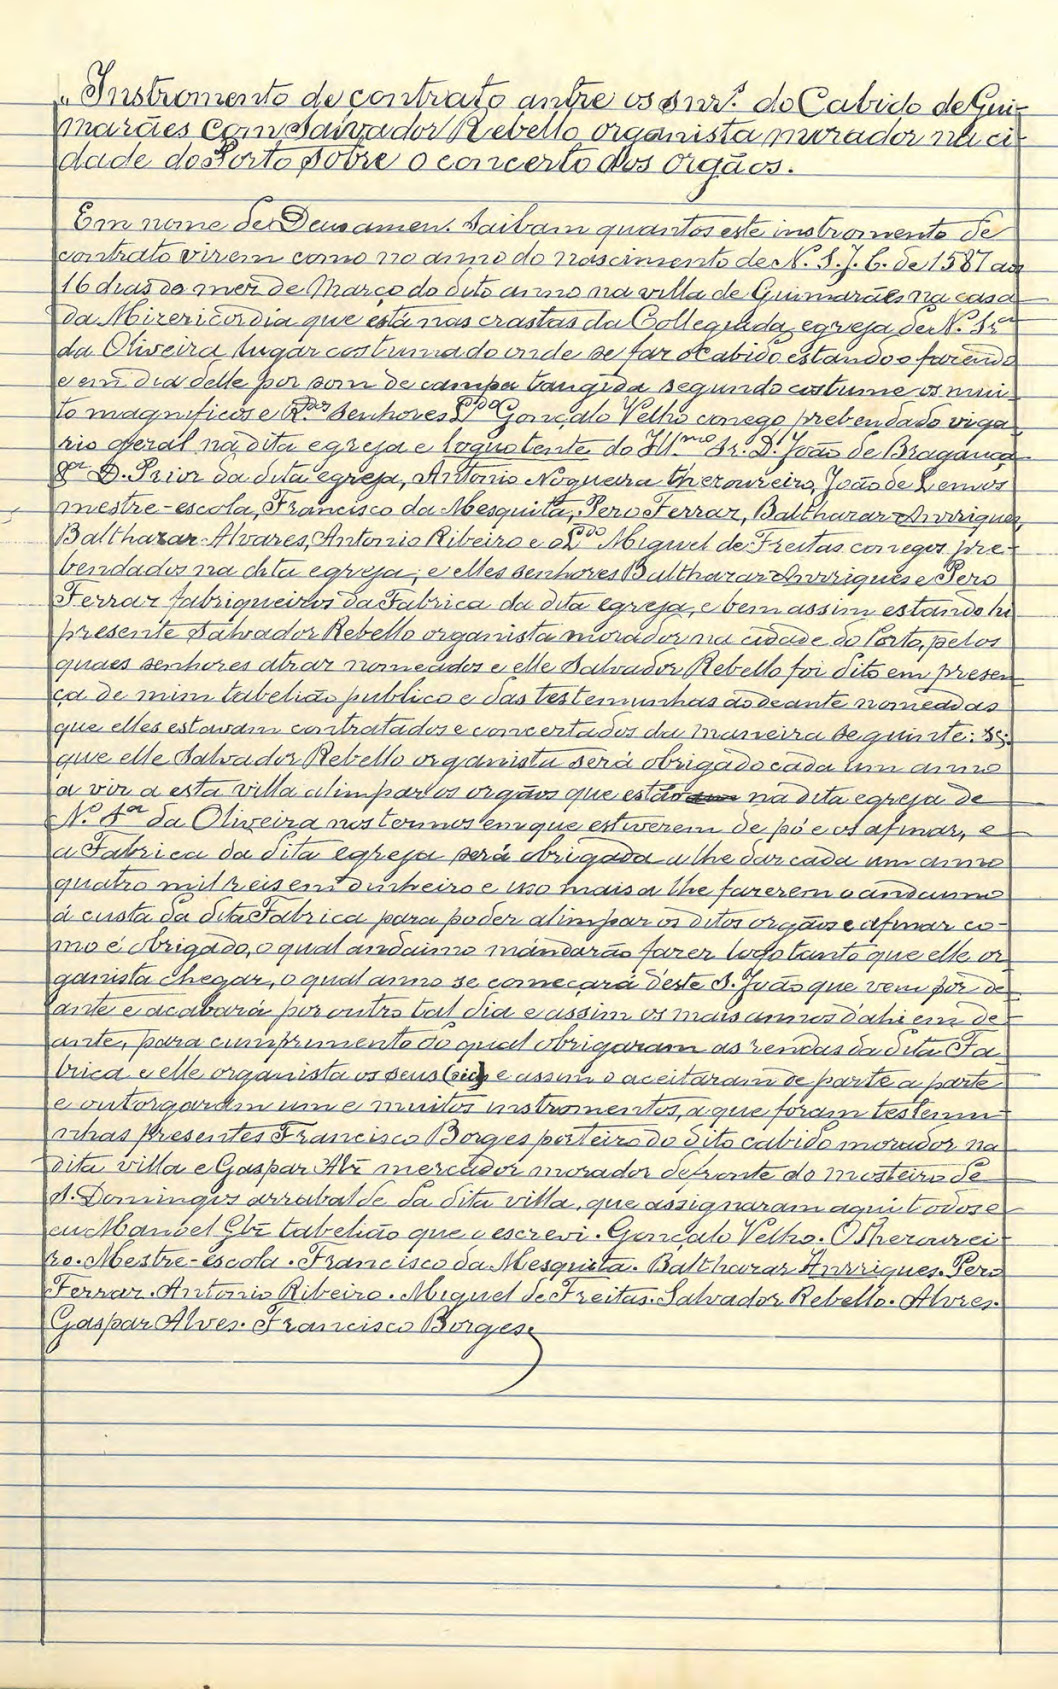 "Instromento de contrato antre os snr.s do Cabido de Gui-
marães com Salvador Rebello organista morador na ci-
dade do Porto sobre o concerto dos orgãos.
Em nome de Deus amen. Saibam quantos este instromento de
contrato virem como no anno do nascimento de N. S. J. C. de 1587 aos
16 dias do mez de Março do dito anno na villa de Guimarães na casa
da Mizericordia que está nas crastas da Collegiada egreja de N. Sr.a
da Oliveira lugar costumado onde se faz o Cabido estando o fazendo
e em dia delle por som de campa tangida segundo costume os mui-
to magnificos e R.dos senhores L.do Gonçalo Velho conego prebendado viga-
rio geral na dita egreja e loquotente do Ill.mo Sr. D. João de Bragança
D. Prior da dita egreja, Antonio Nogueira theroureiro, João de Lemos
mestre-escola, Francisco da Mesquita, Pero Ferraz, Balthazar Anrriques,
Balthazar Alvares, Antonio Ribeiro e o L.do Miguel de Freitas conegos pre-
bendados na dita egreja; e elles senhores Balthazar Anrriques e Pero
Ferraz fabriqueiros da Fabrica da dita egreja, e bem assim estando hi
presente Salvador Rebello organista morador na cidade do Porto, pelos
quaes senhores atraz nomeados e elle Salvador Rebello foi dito em presen-
ça de mim tabelião publico e das testemunhas ao deante nomeadas
que elles estavam contratados e concertados da maneira seguinte: sc:
que elle Salvador Rebello organista será obrigado cada um anno
a vir a esta villa alimpar os orgãos que estão na dita egreja de
N. S.a da Oliveira nos termos em que estiverem de pó e os afinar, e
a Fabrica da dita egreja será obrigada a lhe dar cada um anno
quatro mil reis em dinheiro e isso mais a lhe fazerem o andaimo
á custa da dita Fabrica para poder alimpar os ditos orgãos e afinar co-
mo é obrigado, o qual andaimo mandarão fazer logo tanto que elle or-
ganista chegar, o qual anno se começará d'este S. João que vem por de-
ante e acabará por outro tal dia e assim os mais annos d'ahi em de-
ante, para cumprimento do qual obrigaram as rendas da dita Fa-
brica e elle organista os seus (sic) e assim o aceitaram de parte a parte
e outorgaram um e muitos instromentos, a que foram testemu-
nhas presentes Francisco Borges porteiro do dito cabido morador na
dita villa e Gaspar Alz mercador morador defronte do mosteiro de
S. Domingos arrabalde da dita villa, que assignaram aqui todos e
eu Manoel Glz tabelião que o escrevi. Gonçalo Velho. O Therourei-
ro. Mestre-escola. Francisco da Mesquita. Balthazar Anrriques. Pero
Ferraz. Antonio Ribeiro. Miguel de Freitas. Salvador Rebello. Alvres.
Gaspar Alves. Francisco Borges.